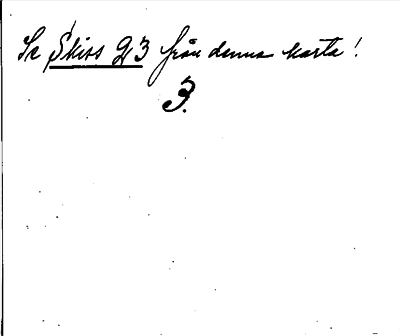 Se Skiss 23 från denna karta!
3.